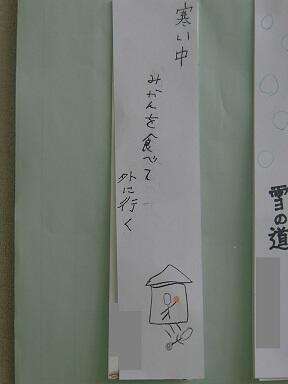 寒い中
みかんを食べて
外に行く
雪の道